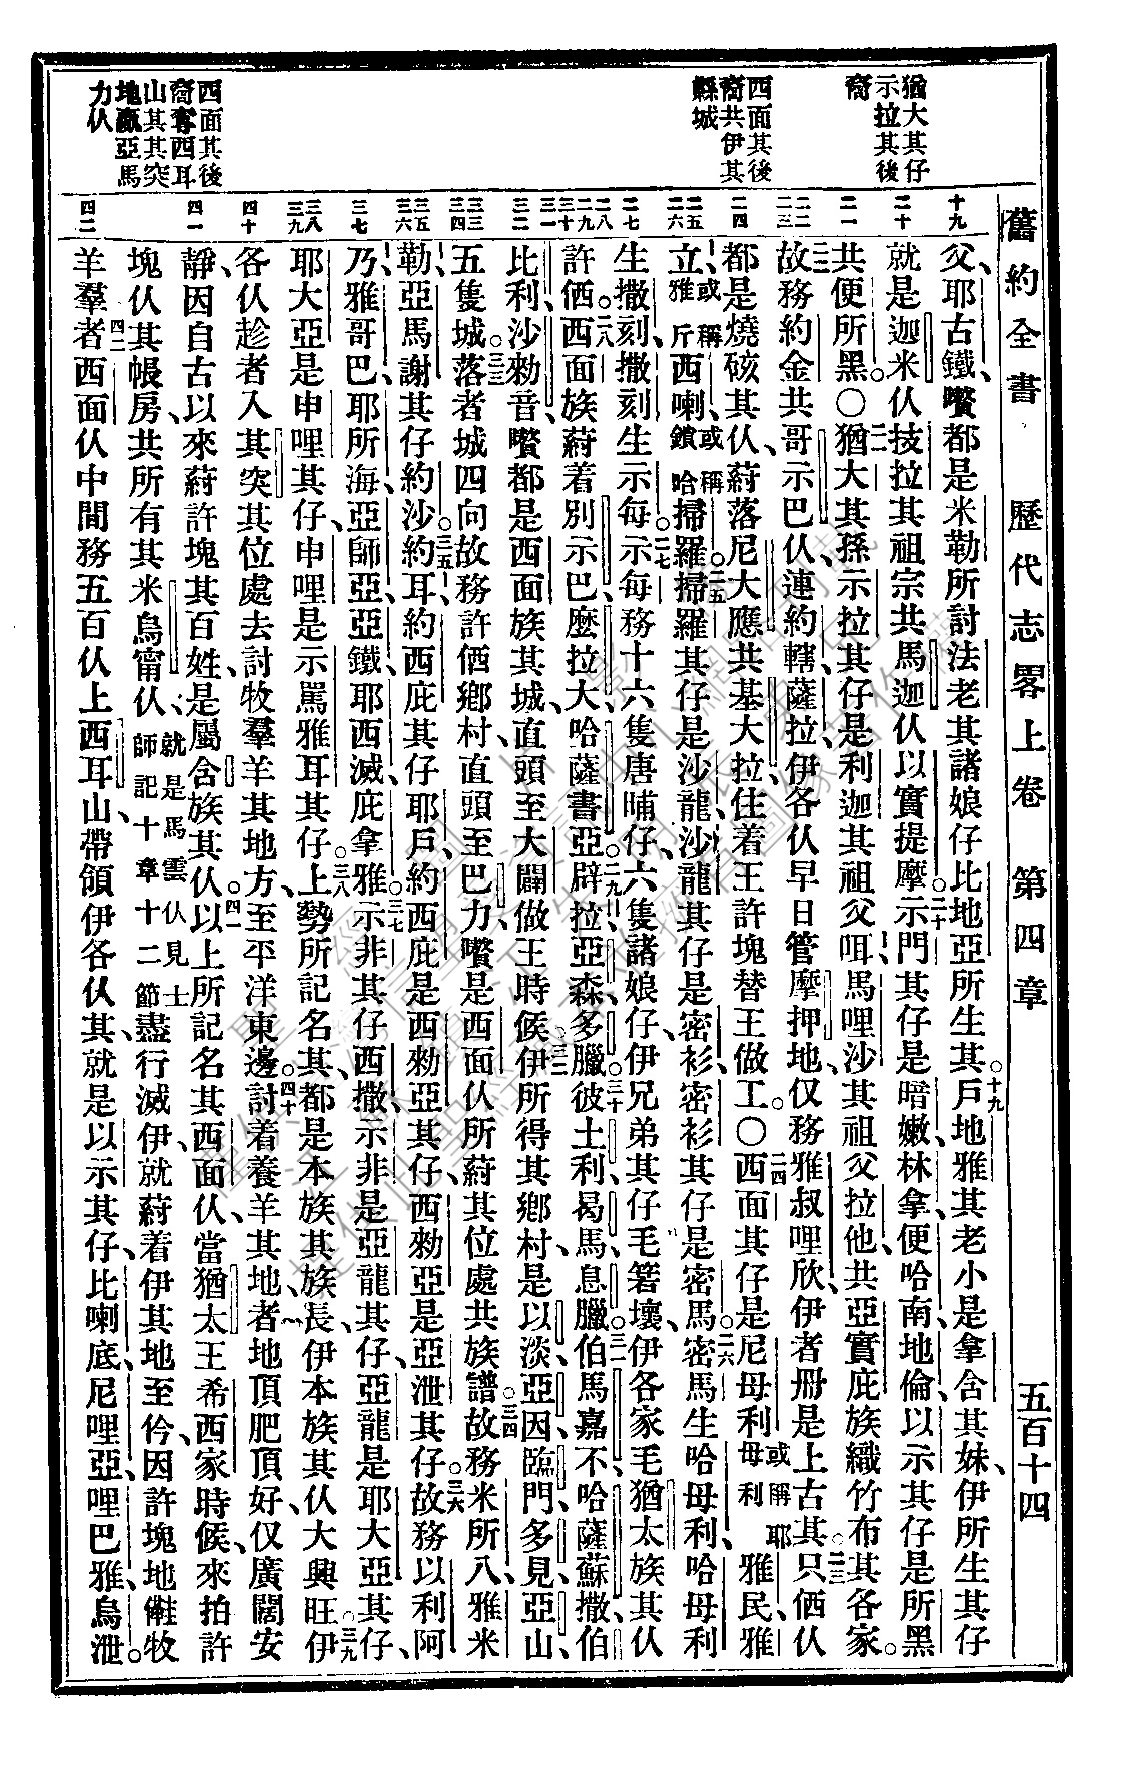 舊約全書 歷代志畧上卷 第四章 五百十四
猶大其仔
示拉其後
裔
西面其後
裔共伊其
縣城
西面其後
裔奪西耳
山其其突
地贏亞馬
力仈
十九
二十
二一
二二
二三
二四
二五
二六
二七
二八
二九
三十
三一
三二
三三
三四
三五
三六
三七
三八
三九
四十
四一
四二
父、耶古鐵、嚽都是米勒所討法老其諸娘仔比地亞所生其。十九戶地雅其老小是拿含其妹、伊所生其仔
就是迦米仈技拉其祖宗共馬迦仈以實提摩。二十示門其仔是暗嫩、林拿、便哈南、地倫、以示其仔是所黑
共便所黑。〇二一猶大其孫示拉其仔是利迦其祖父咡、馬哩沙其祖父拉他、共亞實庇族織竹布其各家。
二二故務約金共哥示巴仈、連約轄、薩拉、伊各仈早日管摩押地、仅務雅叔哩欣伊者冊是上古其。二三只伵仈
都是燒硋其仈、蒔落尼大應共基大拉、住着王許塊替王做工。〇二四西面其仔是尼母利、或稱耶母利雅民、雅
立、或稱雅斤西喇、或稱鎖哈掃羅。二五掃羅其仔是沙龍、沙龍其仔是密衫、密衫其仔是密馬。二六密馬生哈母利、哈母利
生撒刻、撒刻生示每。二七示每務十六隻唐晡仔、六隻諸娘仔、伊兄弟其仔毛箬壞、伊各家毛猶太族其仈
許伵。二八西面族蒔着別示巴、麼拉大、哈薩書亞、二九辟拉、亞森、多臘、三十彼土利、曷馬、息臘、三一伯馬嘉不、哈薩蘇撒、伯
比利、沙勑音、嚽都是西面族其城、直頭至大闢做王時候。三二伊所得其鄉村、是以淡、亞因、臨門、多見、亞山、
五隻城。三三落者城四向、故務許伵鄉村、直頭至巴力、嚽是西面仈所蒔其位處共族譜。三四故務米所八、雅米
勒、亞馬謝其仔約沙、三五約耳、約西庇其仔耶戶、約西庇是西勑亞其仔、西勑亞是亞泄其仔。三六故務以利阿
乃、雅哥巴、耶所海、亞師亞、亞鐵、耶西滅、庇拿雅。三七示非其仔西撒、示非是亞龍其仔、亞龍是耶大亞其仔、
耶大亞是申哩其仔、申哩是示罵雅其仔。三八上勢所記名其、都是本族其族長、伊本族其仈大興旺。三九伊
各仈趁者入其突其位處、去討牧羣羊其地方、至平洋東邊。四十討着養羊其地、者地頂肥頂好、仅廣闊安
靜、因自古以來蒔許塊其百姓、是屬含族其仈。四一以上所記名其西面仈、當猶太王希西家時候、來拍許
塊仈其帳房、共所有其米烏甯仈、就是馬雲仈見士師記十章十二節盡行滅伊、就蒔着伊其地至仱、因許塊地僫牧
羊羣者。四二西面仈中間務五百仈上西耳山、帶領伊各仈其、就是以示其仔、比喇底、尼哩亞、哩巴雅、烏泄。